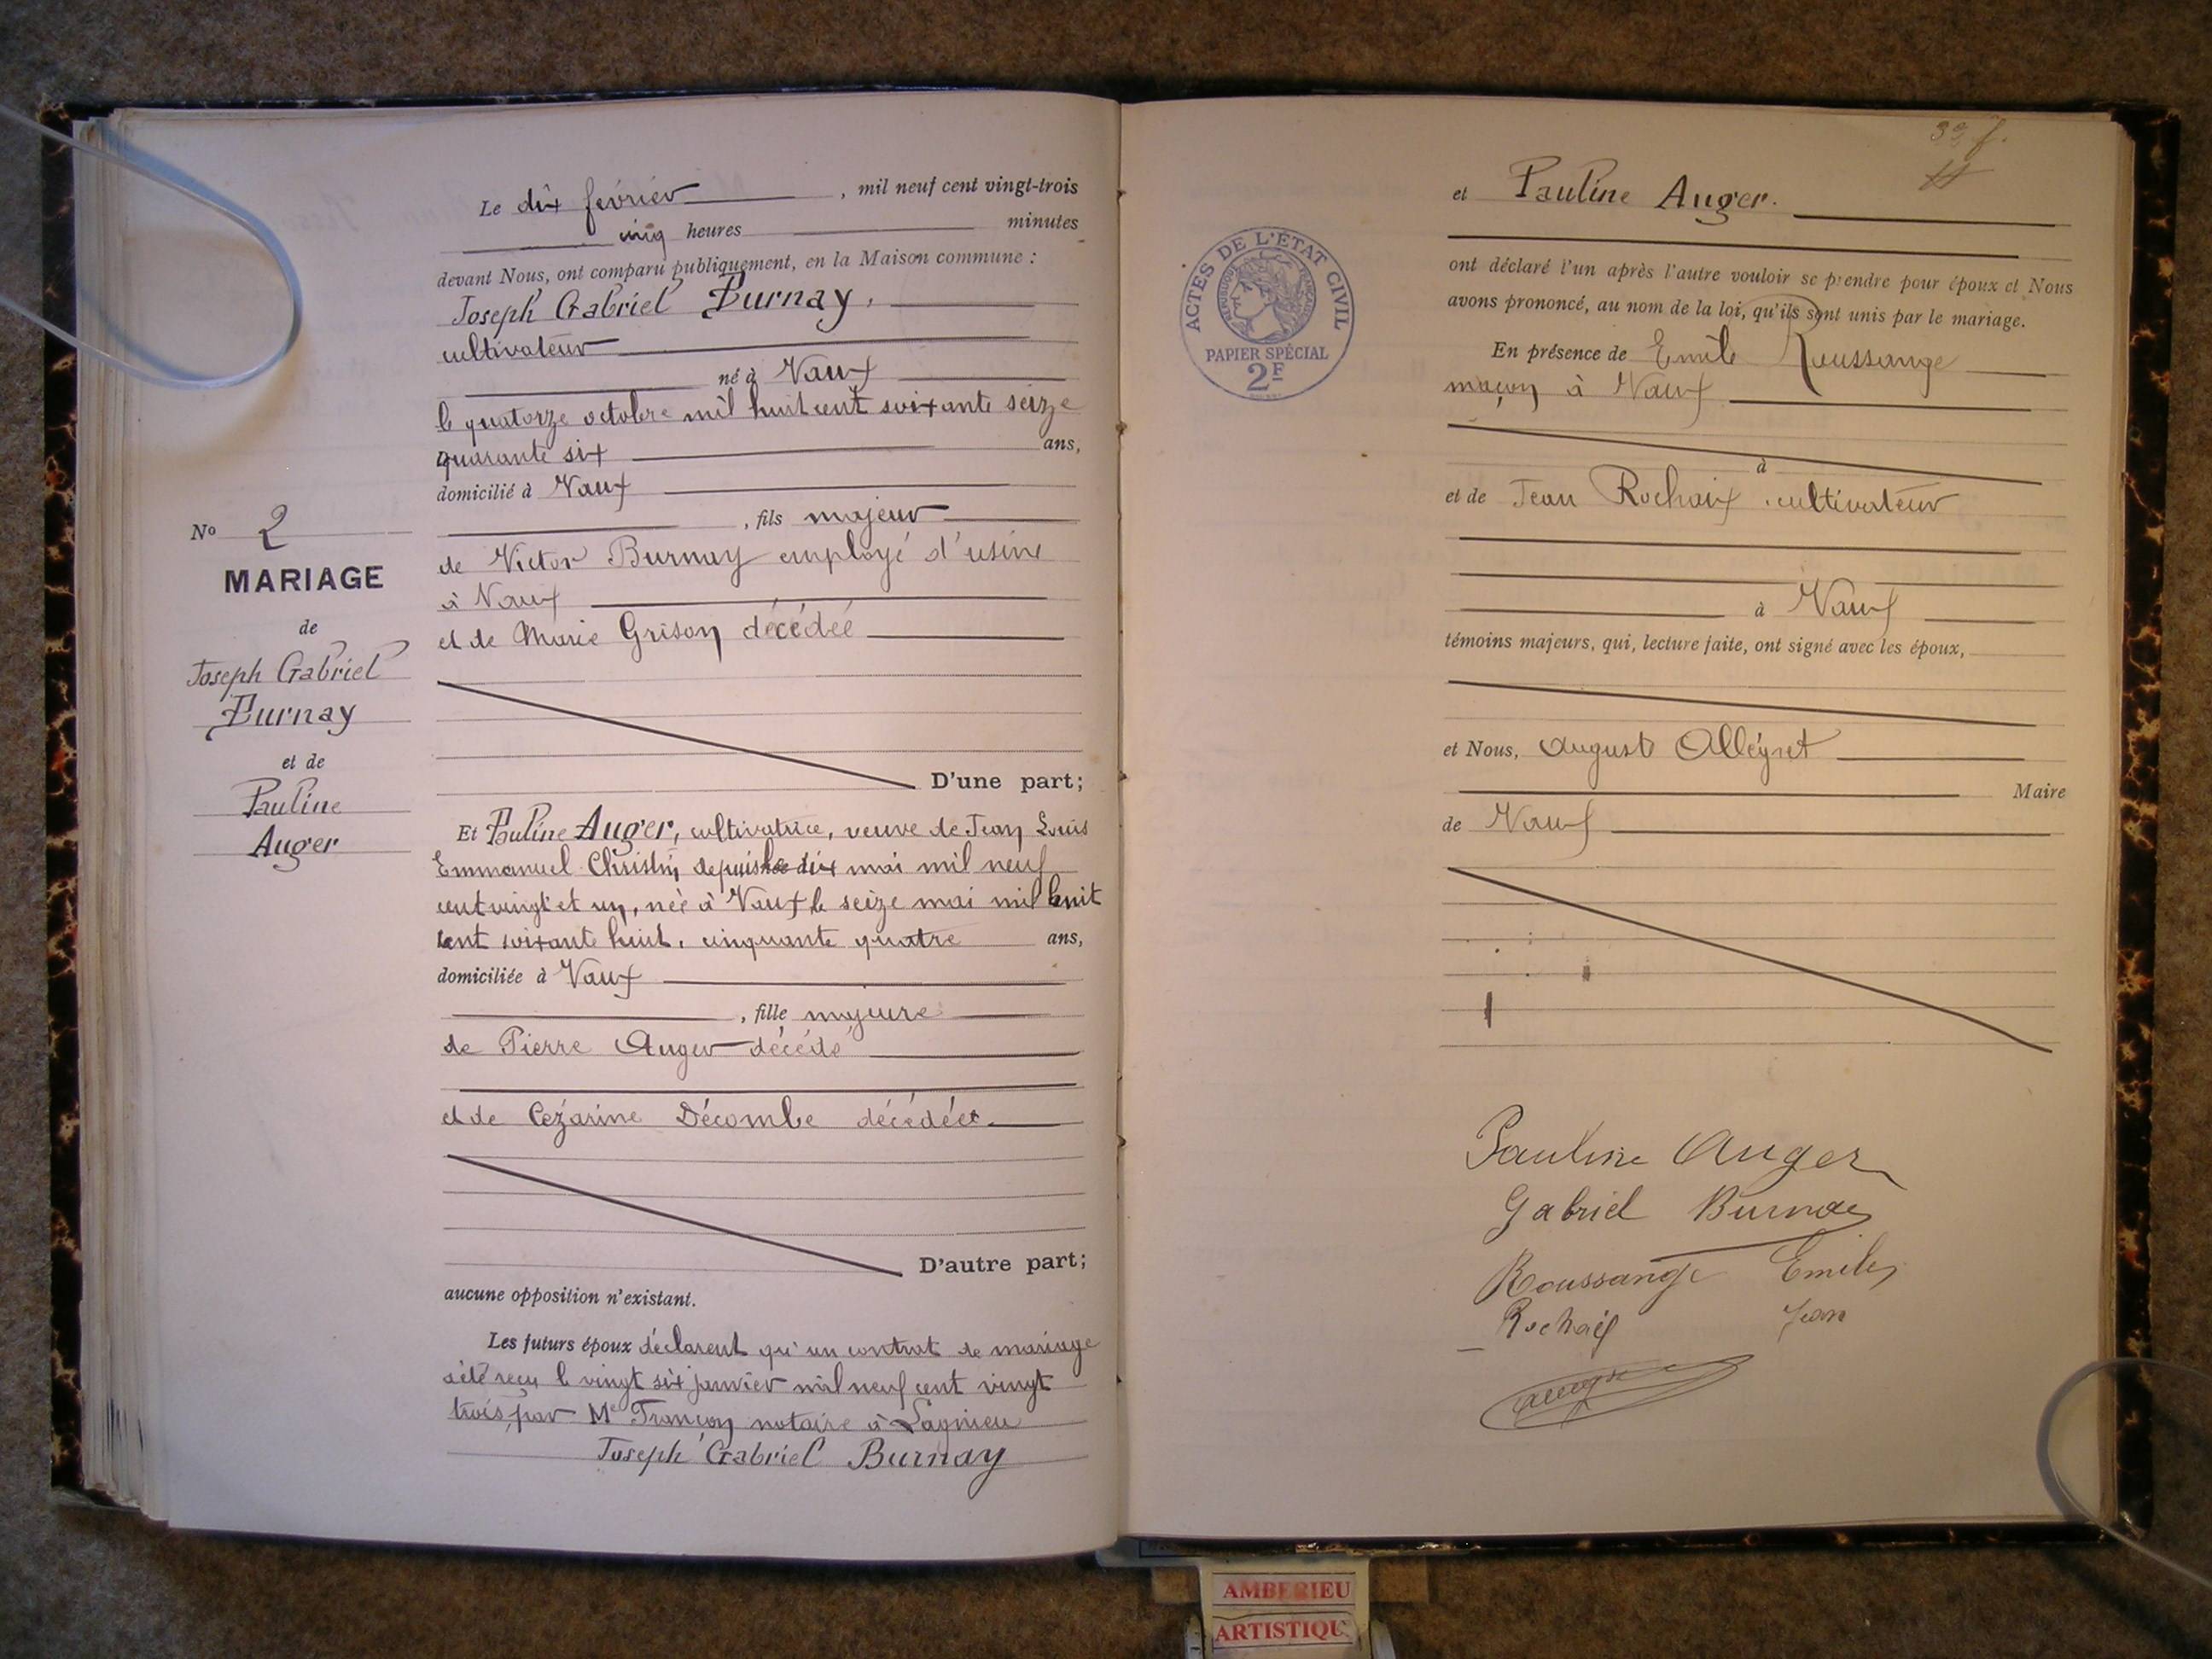 Le dix février , mil neuf cent vingt-trois
cinq heures minutes
devant Nous, ont comparu publiquement, en la Maison commune :
Joseph Gabriel Burnay,
cultivateur
né à Vaux
le quatorze octobre mil huit cent soixante seize
quarante six ans,
domicilié à Vaux
, fils majeur
de Victor Burnay employé d'usine
à Vaux
et de Marie Grison décédée
D'une part;
No 2
MARIAGE
de
Joseph Gabriel
Burnay
et de
Pauline
Auger
Et Pauline Auger, cultivatrice, veuve de Jean Louis
Emmanuel Christin depuis le dix mai mil neuf
cent vingt et un, née à Vaux le seize mai mil huit
cent soixante huit, cinquante quatre ans,
domiciliée à Vaux
, fille majeure
de Pierre Auger décédé
et de Cézarine Décombe décédée
D'autre part;
aucune opposition n'existant.
Les futurs époux déclarent qu'un contrat de mariage
a été reçu le vingt six janvier mil neuf cent vingt
trois, par Me Françon notaire à Lagnieu
Joseph Gabriel Burnay
et Pauline Auger.
ACTES DE L'ÉTAT CIVIL
PAPIER SPÉCIAL
2F
ont déclaré l'un après l'autre vouloir se prendre pour époux et Nous
avons prononcé, au nom de la loi, qu'ils sont unis par le mariage.
En présence de Emile Roussange
maçon à Vaux
à
et de Jean Rochaix, cultivateur
à Vaux
témoins majeurs, qui, lecture faite, ont signé avec les époux,
et Nous, Auguste Alleyret
Maire
de Vaux
Pauline Auger
Gabriel Burnay
Roussange Emile
Rochaix Jean
AMBERIEU
ARTISTIQU